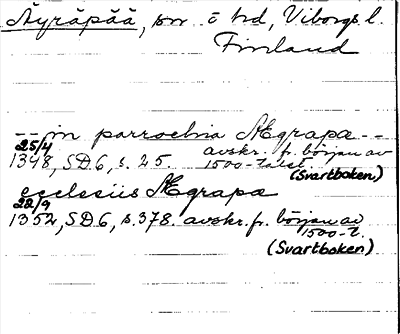 Äyräpää, sn o hd, Viborgs l.
Finland
-- in parrochia Ægrapa --
25/4 avskr. fr. början av
1348, SD6, s. 25. 1500-talet.
(Svartboken)
ecclesiis Ægrapa
22/9
1352, SD6, s. 378. avskr. fr. början av
1500-t.
(Svartboken)